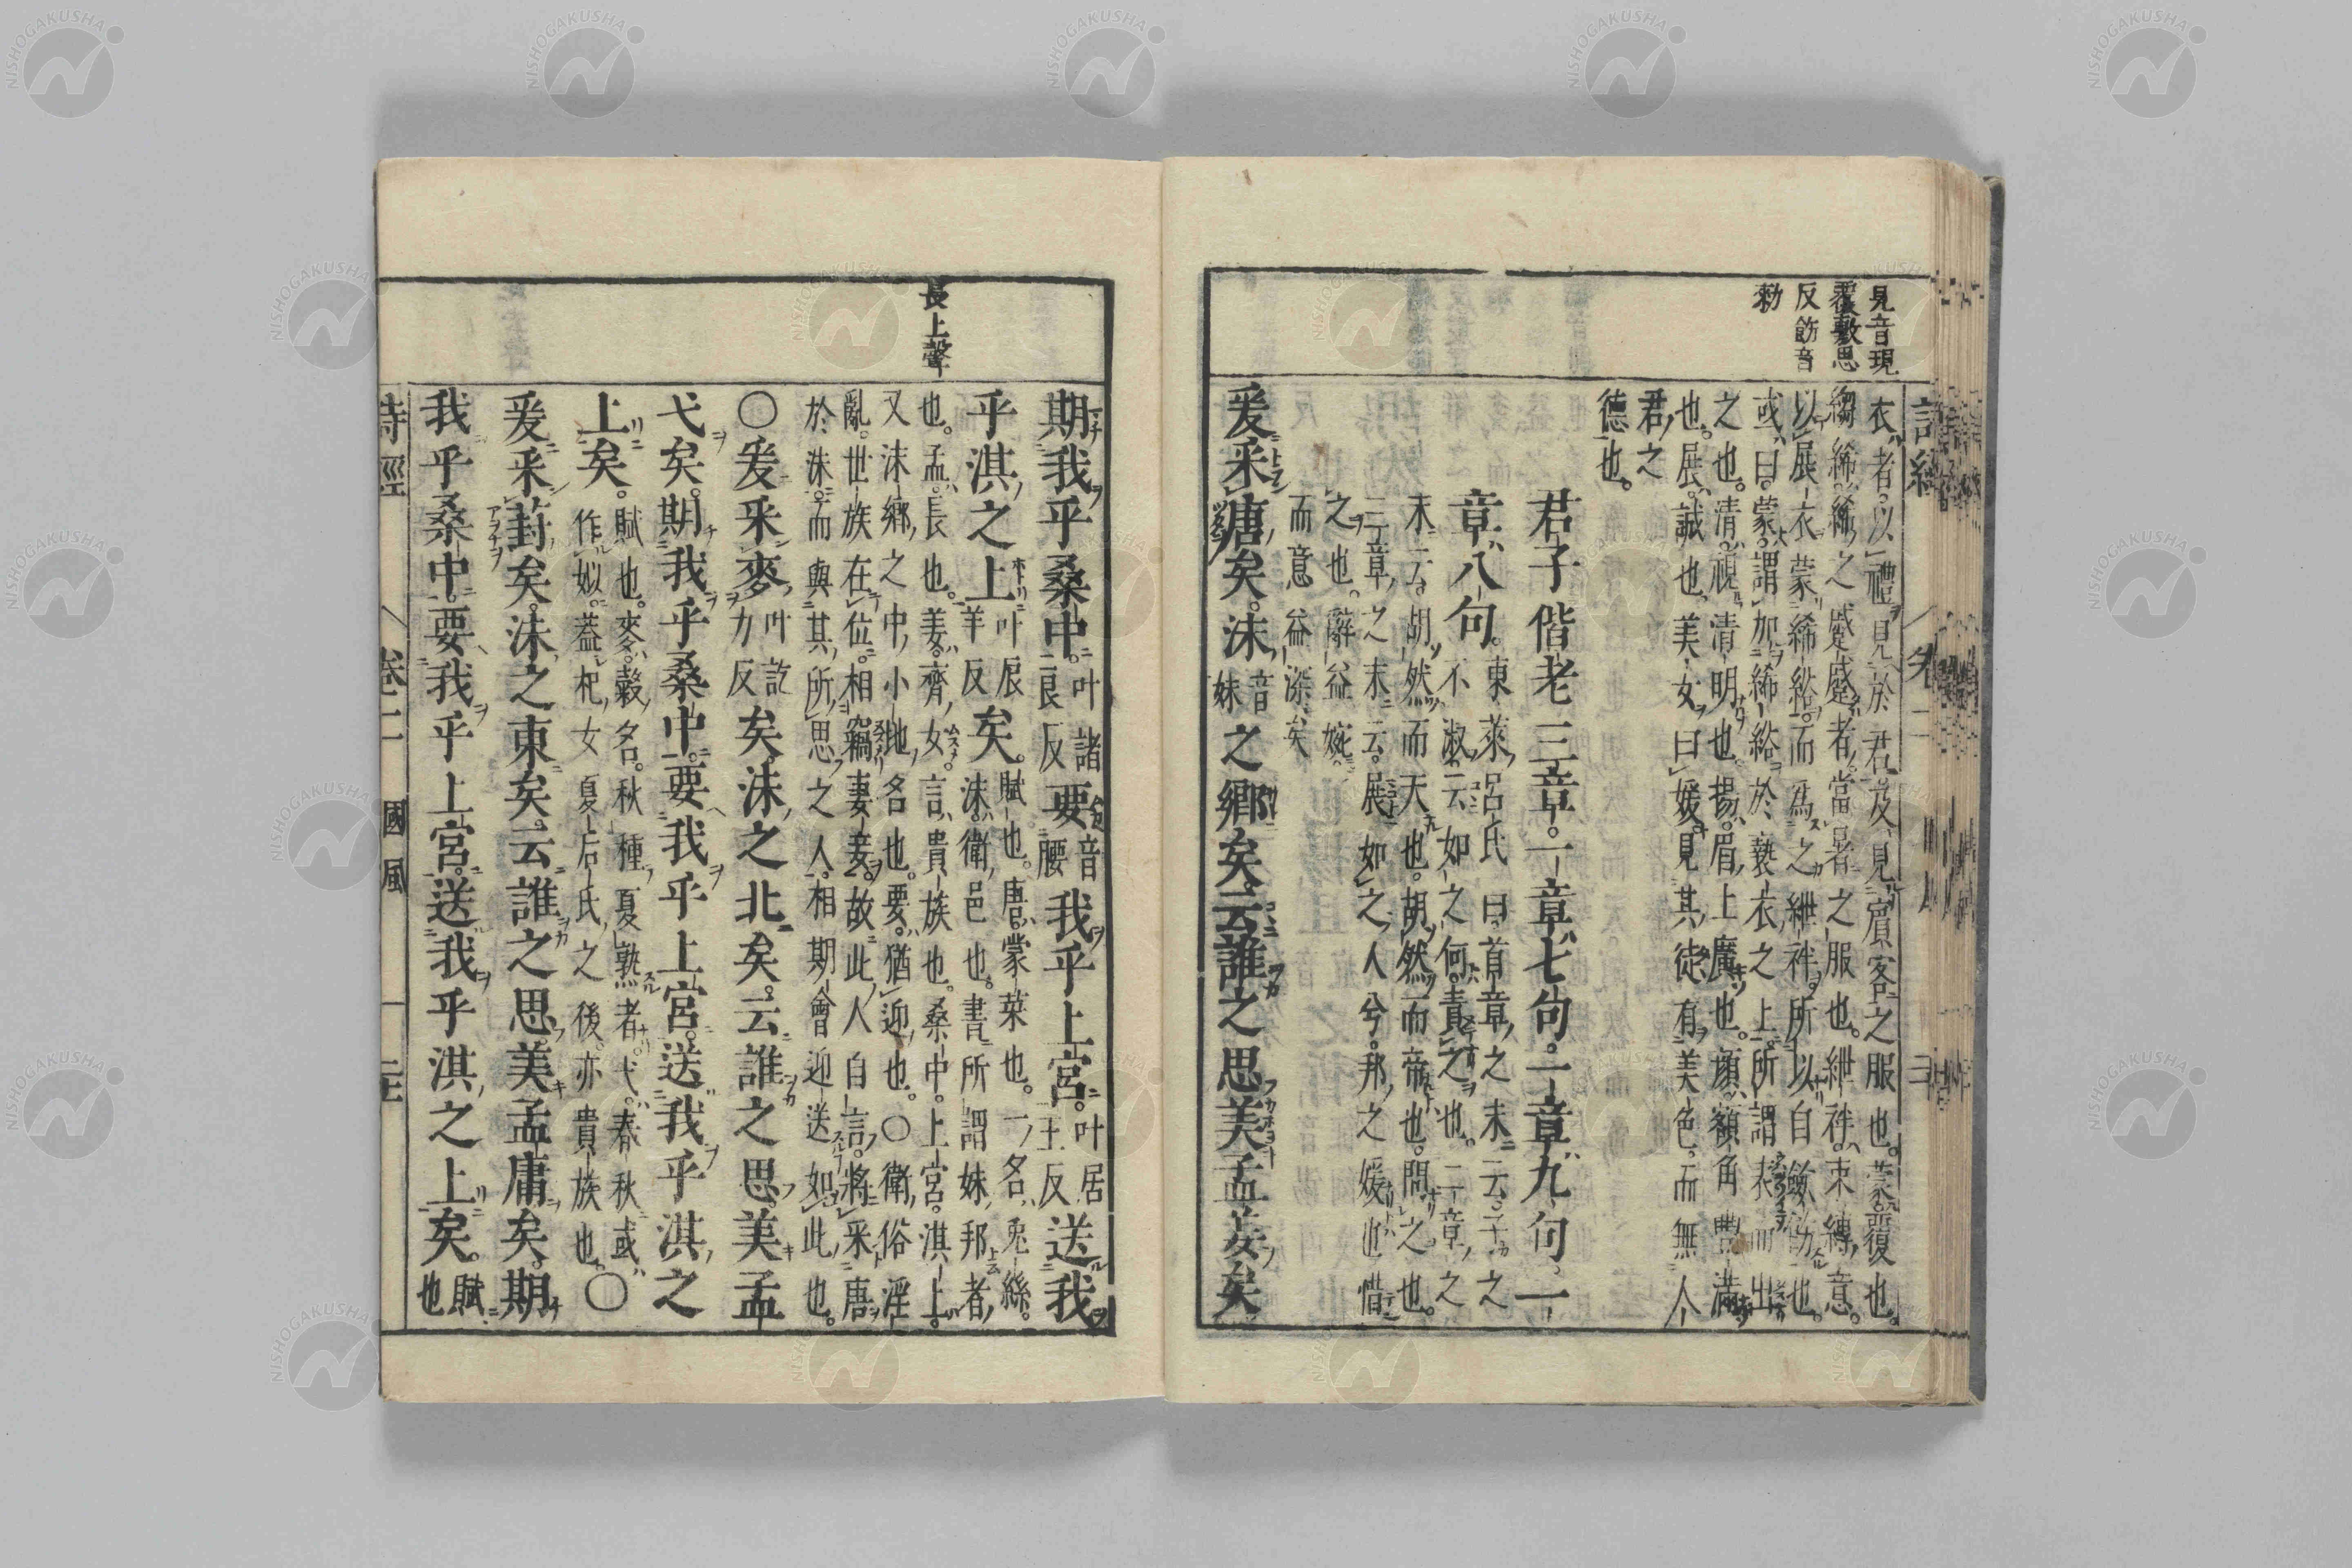 見音現
覆敷思
反飾音
勑
衣者以禮見於君及見賓客之服也蒙覆也
縐絺絺之蹙蹙者當暑之服也紲袢束縛意
以展衣蒙絺綌而為之紲袢所以自斂飭也
或曰蒙謂加絺綌於褻衣之上所謂表而出
之也清視清明也揚眉上廣也顏額角豐滿
也展誠也美女曰媛見其徒有美色而無人
君之
德也
君子偕老三章一章七句一章九句一
章八句東萊呂氏曰首章之末云子之
不淑云如之何責之也二章之
末云胡然而天也胡然而帝也問之也
三章之末云展如之人兮邦之媛也惜
之也辭益婉
而意益深矣
爰采唐矣沬音妹之鄉矣云誰之思美孟姜矣
長上聲
期我乎桑中叶諸良反要音腰我乎上宮叶居王反送我
乎淇之上叶辰羊反矣賦也唐蒙菜也一名兎絲
沬衛邑也書所謂妹邦者
也孟長也姜齊女言貴族也桑中上宮淇上
又沬鄉之中小地名也要猶迎也○衛俗淫
亂世族在位相竊妻妾故此人自言將采唐
於沬而與其所思之人相期會迎送如此也
○爰采麥叶訖力反矣沬之北矣云誰之思美孟
弋矣期我乎桑中要我乎上宮送我乎淇之
上矣賦也麥穀名秋種夏熟者弋春秋或
作姒蓋杞女夏后氏之後亦貴族也○
爰采葑矣沬之東矣云誰之思美孟庸矣期
我乎桑中要我乎上宮送我乎淇之上矣賦也
詩經 卷二 國風